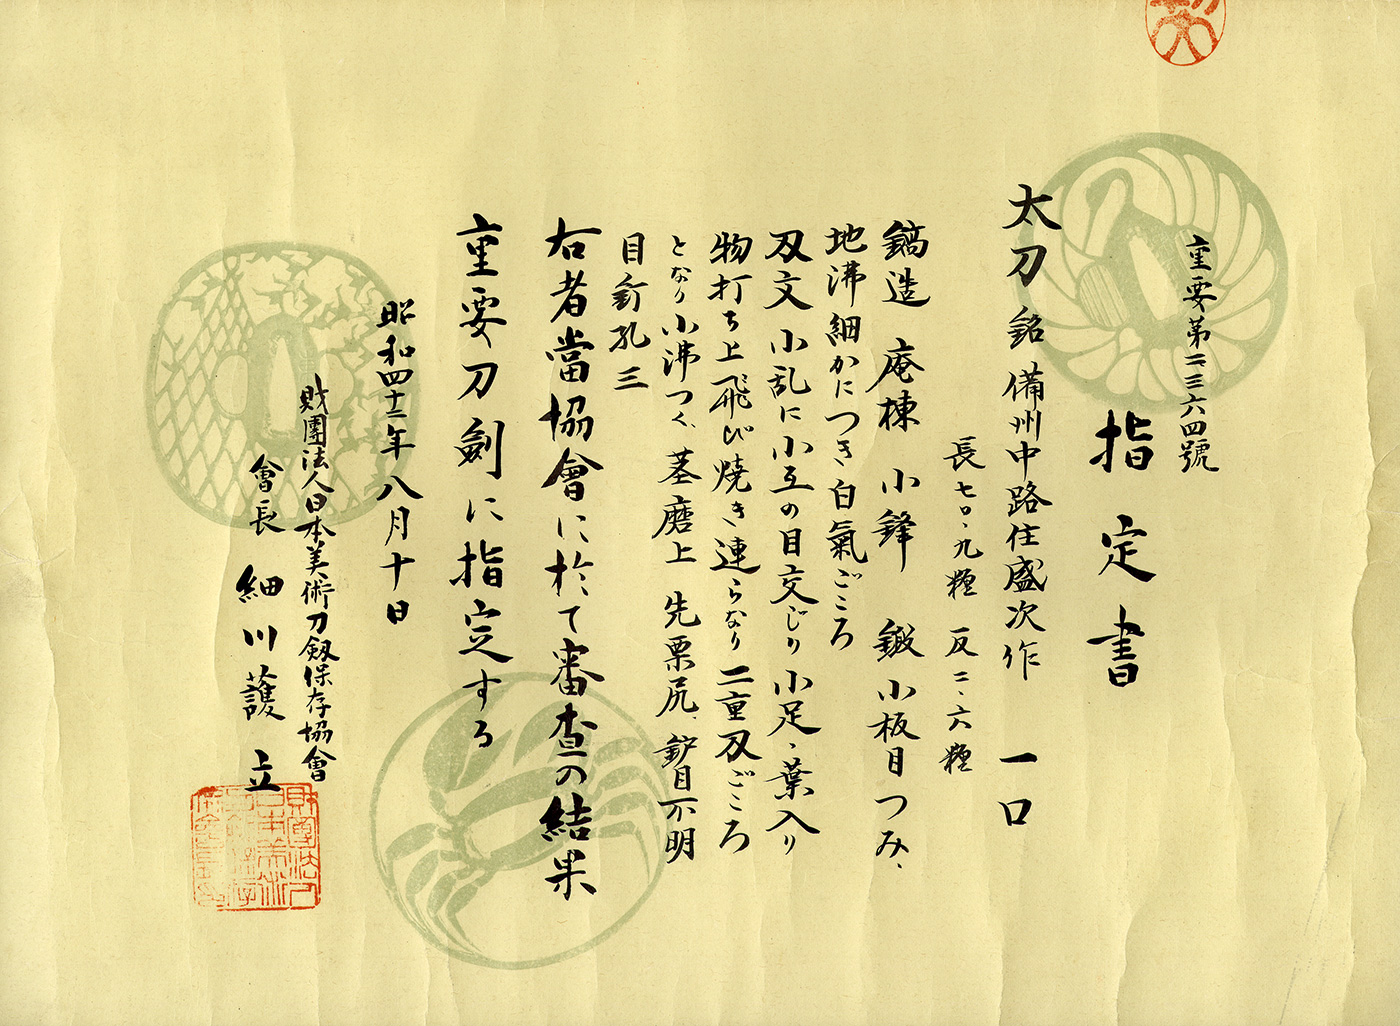 重要第二三六四號
指定書
太刀 銘 備州中路住盛次作 一口
長七〇、九糎 反二、六糎
鎬造 庵棟 小鋒 鍛 小板目つみ、
地沸細かにつき白氣ごころ
刄文 小乱に小互の目交じり 小足、葉入り
物打ち上飛び焼き連らなり 二重刄ごころ
となり小沸つく、茎磨上 先栗尻、鑢目不明
目釘孔三
右者當協會に於て審査の結果
重要刀剣に指定する
昭和四十二年八月十日
財團法人日本美術刀剱保存協會
會長 細川護立